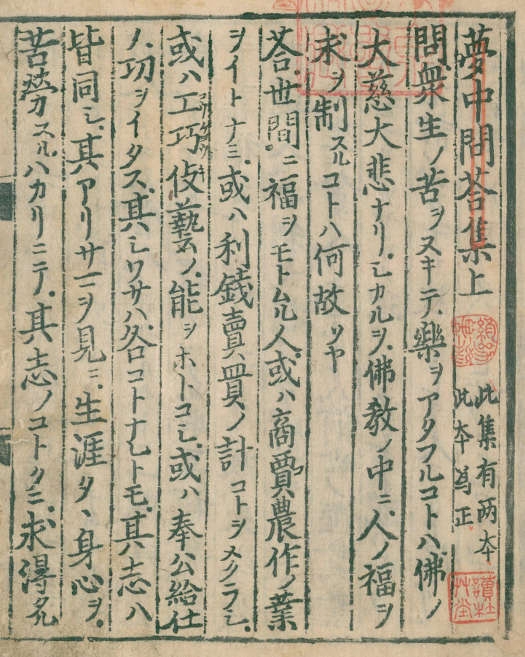 夢中問荅集上
此集有两本
此本為正
問衆生ノ苦ヲヌキテ樂ヲアタフルコトハ佛ノ
大慈大悲ナリシカルヲ佛教ノ中ニ人ノ福ヲ
求ヲ制スルコトハ何故ソヤ
荅世間ニ福ヲモトムル人或ハ商賈農作ノ業
ヲイトナミ或ハ利錢賣買ノ計コトヲメクラシ
或ハ工巧伎藝ノ能ヲホトコシ或ハ奉公給仕
ノ功ヲイタス其シワサハ各コトナレトモ其志ハ
皆同シ其アリサマヲ見ニ生涯タヽ身心ヲ
苦勞スルハカリニテ其志ノコトクニ求得タ